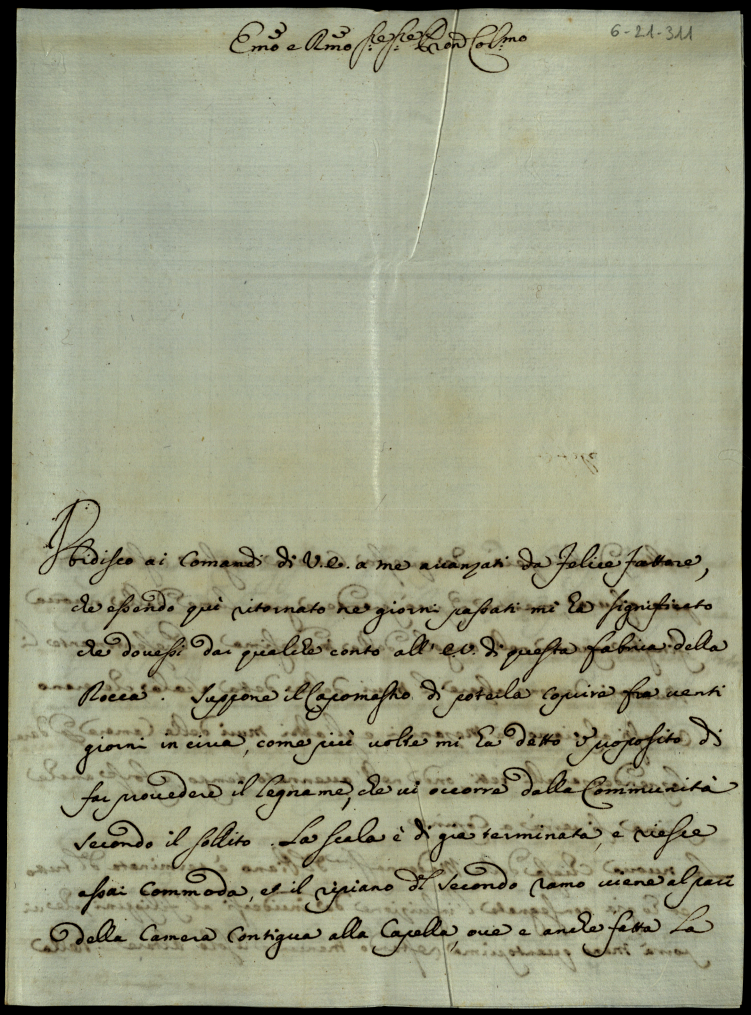 6-21-311
Emo e Rmo Sre Sre Pron Colmo
Vbidisco ai Comandi di V.E. a me avanzati da Felice Fattore,
che essendo quì ritornato ne giorni passati mi ha significato
che dovessi dar qualche conto all' E.V. di questa fabrica della
Rocca. Suppone il Capomastro di poterla coprire fra venti
giorni in circa, come più volte mi ha detto à proposito di
far provedere il legname, che vi occorre dalla Communità
secondo il sollito. La scala è di già terminata, e riesce
assai Commoda, et il ripiano dl secondo ramo viene al pari
della Camera Contigua alla Capella, ove e anche fatta la